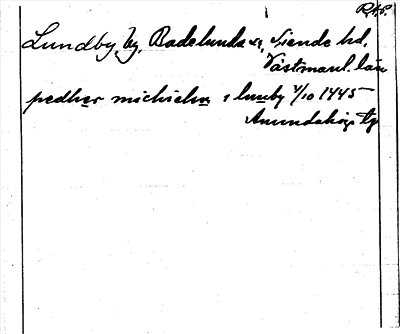 R.A.P.
Lundby, by, Badelunda sn, Siende hd,
Västmanl. län
pedher michiels i lunby 4/10 1445
Anundahögs tg